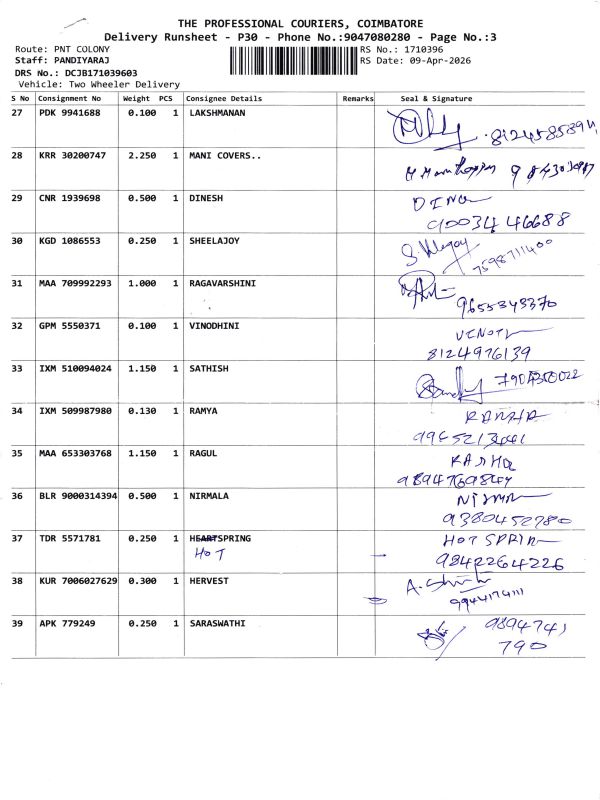 THE PROFESSIONAL COURIERS, COIMBATORE
Delivery Runsheet - P30 - Phone No.:9047080280 - Page No.:3
Route: PNT COLONY RS No.: 1710396
Staff: PANDIYARAJ RS Date: 09-Apr-2026
DRS No.: DCJB171039603
Vehicle: Two Wheeler Delivery
S No Consignment No Weight PCS Consignee Details Remarks Seal & Signature
27 PDK 9941688 0.100 1 LAKSHMANAN
28 KRR 30200747 2.250 1 MANI COVERS..
29 CNR 1939698 0.500 1 DINESH
90034 46688
30 KGD 1086553 0.250 1 SHEELAJOY
7598711400
31 MAA 709992293 1.000 1 RAGAVARSHINI
9655343370
32 GPM 5550371 0.100 1 VINODHINI
8124976139
33 IXM 510094024 1.150 1 SATHISH
34 IXM 509987980 0.130 1 RAMYA
35 MAA 653303768 1.150 1 RAGUL
36 BLR 9000314394 0.500 1 NIRMALA
9380452780
37 TDR 5571781 0.250 1 HEARTSPRING
HOT 9842264226
38 KUR 7006027629 0.300 1 HERVEST
9944174111
39 APK 779249 0.250 1 SARASWATHI 9894741
790